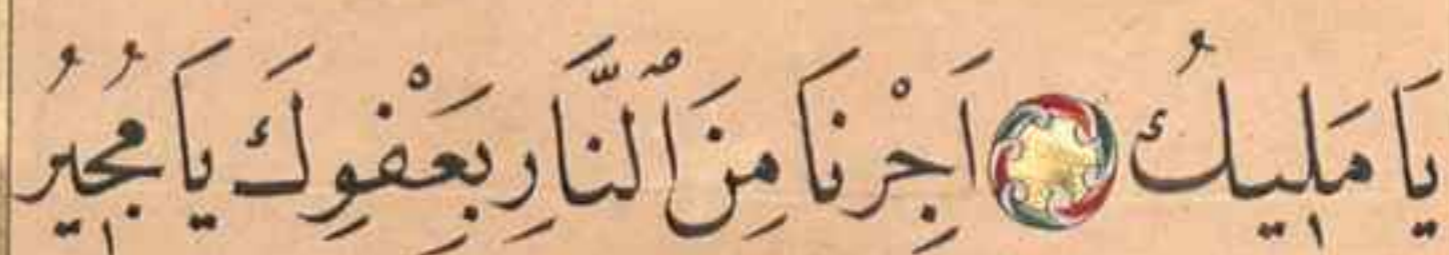 يَا مَلِيكُ اَجِرْنَا مِنَ ٱلنَّارِ بِعَفْوِكَ يَا مُجِيرُ